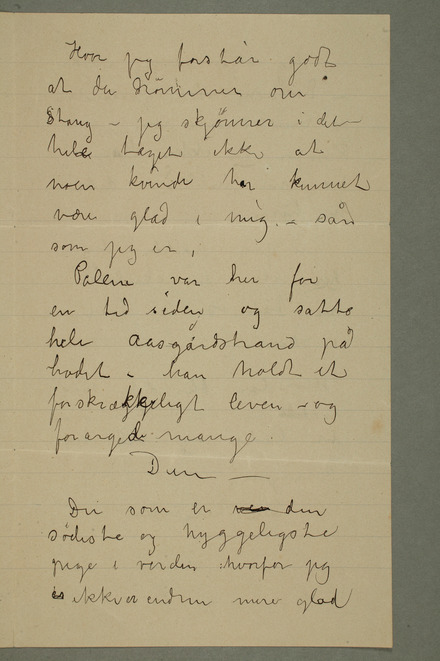 Hvor jeg forstår godt
at du drømmer om
Stang – jeg skjønner i det
hele taget ikke at
noen kvinde har kunnet
være glad i mig – sån
som jeg er,
Palene var her for
en tid siden og satte
hele Aasgårdstrand på
hodet – han holdt et
forskrækkeligt leven – og
forarged mange.
Du –
Du som er den
sødeste og hyggeligste
pige i verden hvorfor jeg
ikke er endnu mere glad